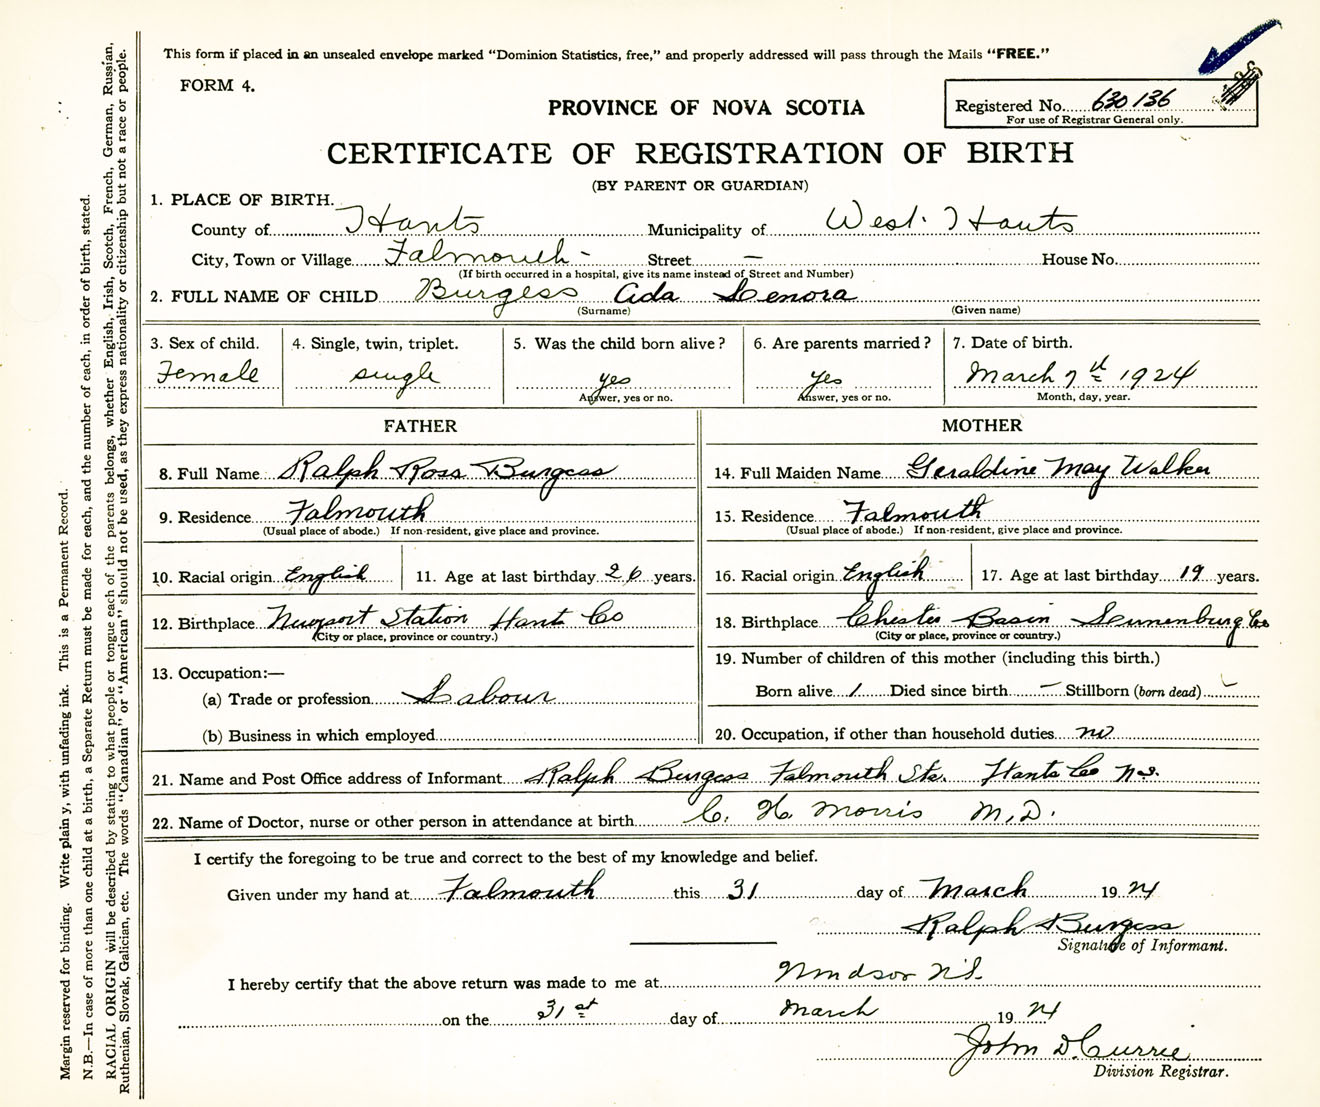 This form if placed in an unsealed envelope marked "Dominion Statistics, free," and properly addressed will pass through the Mails "FREE."
FORM 4.
PROVINCE OF NOVA SCOTIA
Registered No. 630136
For use of Registrar General only.
CERTIFICATE OF REGISTRATION OF BIRTH
(BY PARENT OR GUARDIAN)
1. PLACE OF BIRTH.
County of Hants Municipality of West Hants
City, Town or Village Falmouth - Street — House No.
(If birth occurred in a hospital, give its name instead of Street and Number)
2. FULL NAME OF CHILD Burgess Ada Lenora
(Surname) (Given name)
3. Sex of child. 4. Single, twin, triplet. 5. Was the child born alive? 6. Are parents married? 7. Date of birth.
Female single yes yes March 7th 1924
Answer, yes or no. Answer, yes or no. Month, day, year.
FATHER MOTHER
8. Full Name Ralph Ross Burgess 14. Full Maiden Name Geraldine May Walker
9. Residence Falmouth 15. Residence Falmouth
(Usual place of abode.) If non-resident, give place and province. (Usual place of abode.) If non-resident, give place and province.
10. Racial origin English 11. Age at last birthday 26 years. 16. Racial origin English 17. Age at last birthday 19 years.
12. Birthplace Newport Station Hants Co 18. Birthplace Chester Basin Lunenburg Co
(City or place, province or country.) (City or place, province or country.)
13. Occupation:— 19. Number of children of this mother (including this birth.)
(a) Trade or profession Labour Born alive 1 Died since birth — Stillborn (born dead) -
(b) Business in which employed 20. Occupation, if other than household duties no
21. Name and Post Office address of Informant Ralph Burgess Falmouth Sta. Hants Co N.S.
22. Name of Doctor, nurse or other person in attendance at birth C. H. Morris M.D.
I certify the foregoing to be true and correct to the best of my knowledge and belief.
Given under my hand at Falmouth this 31 day of March 1924
Ralph Burgess
Signature of Informant.
I hereby certify that the above return was made to me at Windsor N.S.
on the 31st day of March 1924
John D. Currie
Division Registrar.
Margin reserved for binding. Write plain y, with unfading ink. This is a Permanent Record.
N.B.—In case of more than one child at a birth, a Separate Return must be made for each, and the number of each, in order of birth, stated.
RACIAL ORIGIN will be described by stating to what people or tongue each of the parents belongs, whether English, Irish, Scotch, French, German, Russian,
Ruthenian, Slovak, Galician, etc. The words "Canadian" or "American" should not be used, as they express nationality or citizenship but not a race or people.